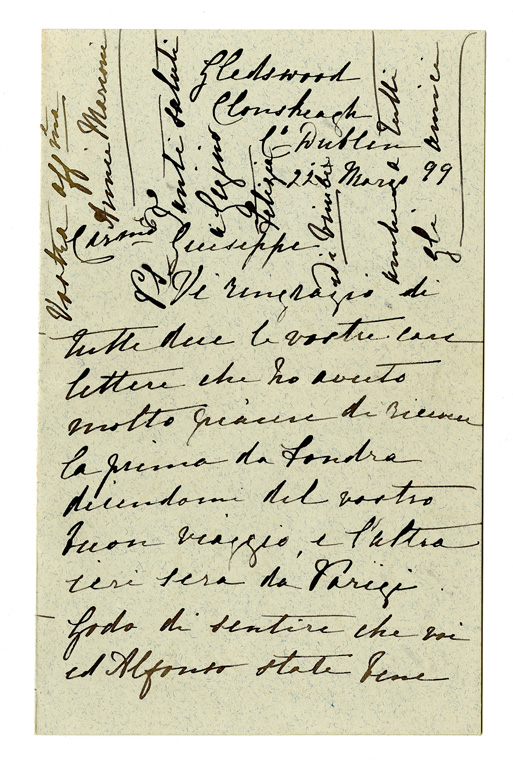 Gledswood
Clonskeagh
Co Dublin
22 Marzo 99
Carmo Giuseppe
Vi ringrazio di
tutte due le vostre care
lettere che ho avuto
molto piacere di ricevere
la prima da Londra
dicendomi del vostro
buon viaggio, e l'altra
ieri sera da Parigi
Godo di sentire che voi
ed Alfonso state bene
Vostra affma
Annie Marconi
PS Tanti saluti
a
Felicia
di
anche a tutti
gli amici